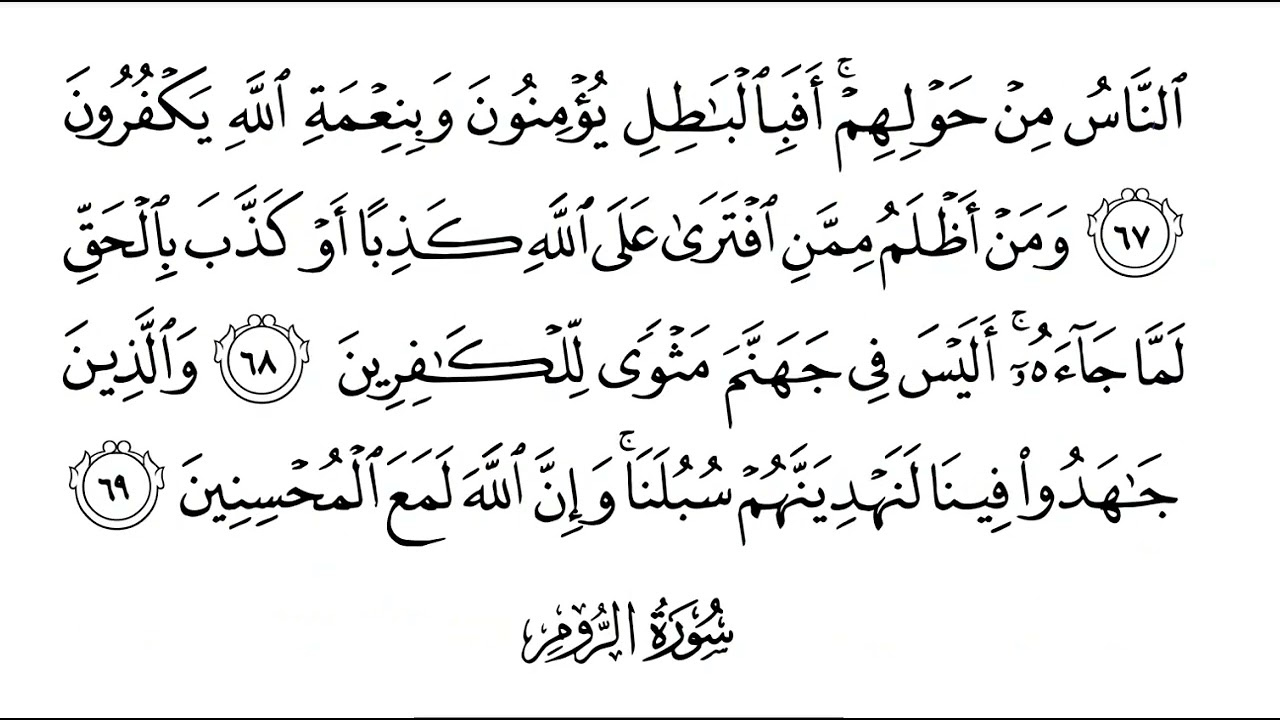 ٱلنَّاسُ مِنۡ حَوۡلِهِمۡۚ أَفَبِٱلۡبَٰطِلِ يُؤۡمِنُونَ وَبِنِعۡمَةِ ٱللَّهِ يَكۡفُرُونَ
٦٧ وَمَنۡ أَظۡلَمُ مِمَّنِ ٱفۡتَرَىٰ عَلَى ٱللَّهِ كَذِبًا أَوۡ كَذَّبَ بِٱلۡحَقِّ
لَمَّا جَآءَهُۥٓۚ أَلَيۡسَ فِي جَهَنَّمَ مَثۡوٗى لِّلۡكَٰفِرِينَ ٦٨ وَٱلَّذِينَ
جَٰهَدُواْ فِينَا لَنَهۡدِيَنَّهُمۡ سُبُلَنَاۚ وَإِنَّ ٱللَّهَ لَمَعَ ٱلۡمُحۡسِنِينَ ٦٩
سُورَةُ الرُّومِ